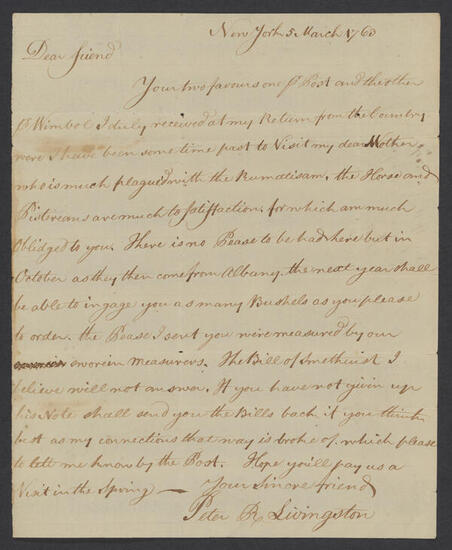 New York 5 March 1760
Dear friend
Your two favours one ⅌ Post and the other
⅌ Wimbol I duly received at my Return from the Country
were I have been some time past to Visit my dear Mother
who is much plagued with the Rumatisam, the Horse and
Pistereans are much to Satisffaction. for which am much
Oblidged to you. There is no Pease to be had here but in
October as they then come from Albany. the next year shall
be able to ingage you as many Bushels as you please
to order. the Pease I sent you were measured by our
sworein measurers. The Bill of Smethurst I
believe will not answar. If you have not givin up
his Note shall send you the Bills back if you think
best as my connections that way is broke of, which please
to lett me know by the Post. Hope you'll pay us a
Visit in the Spring —
Your Sincere friend
Peter R Livingston